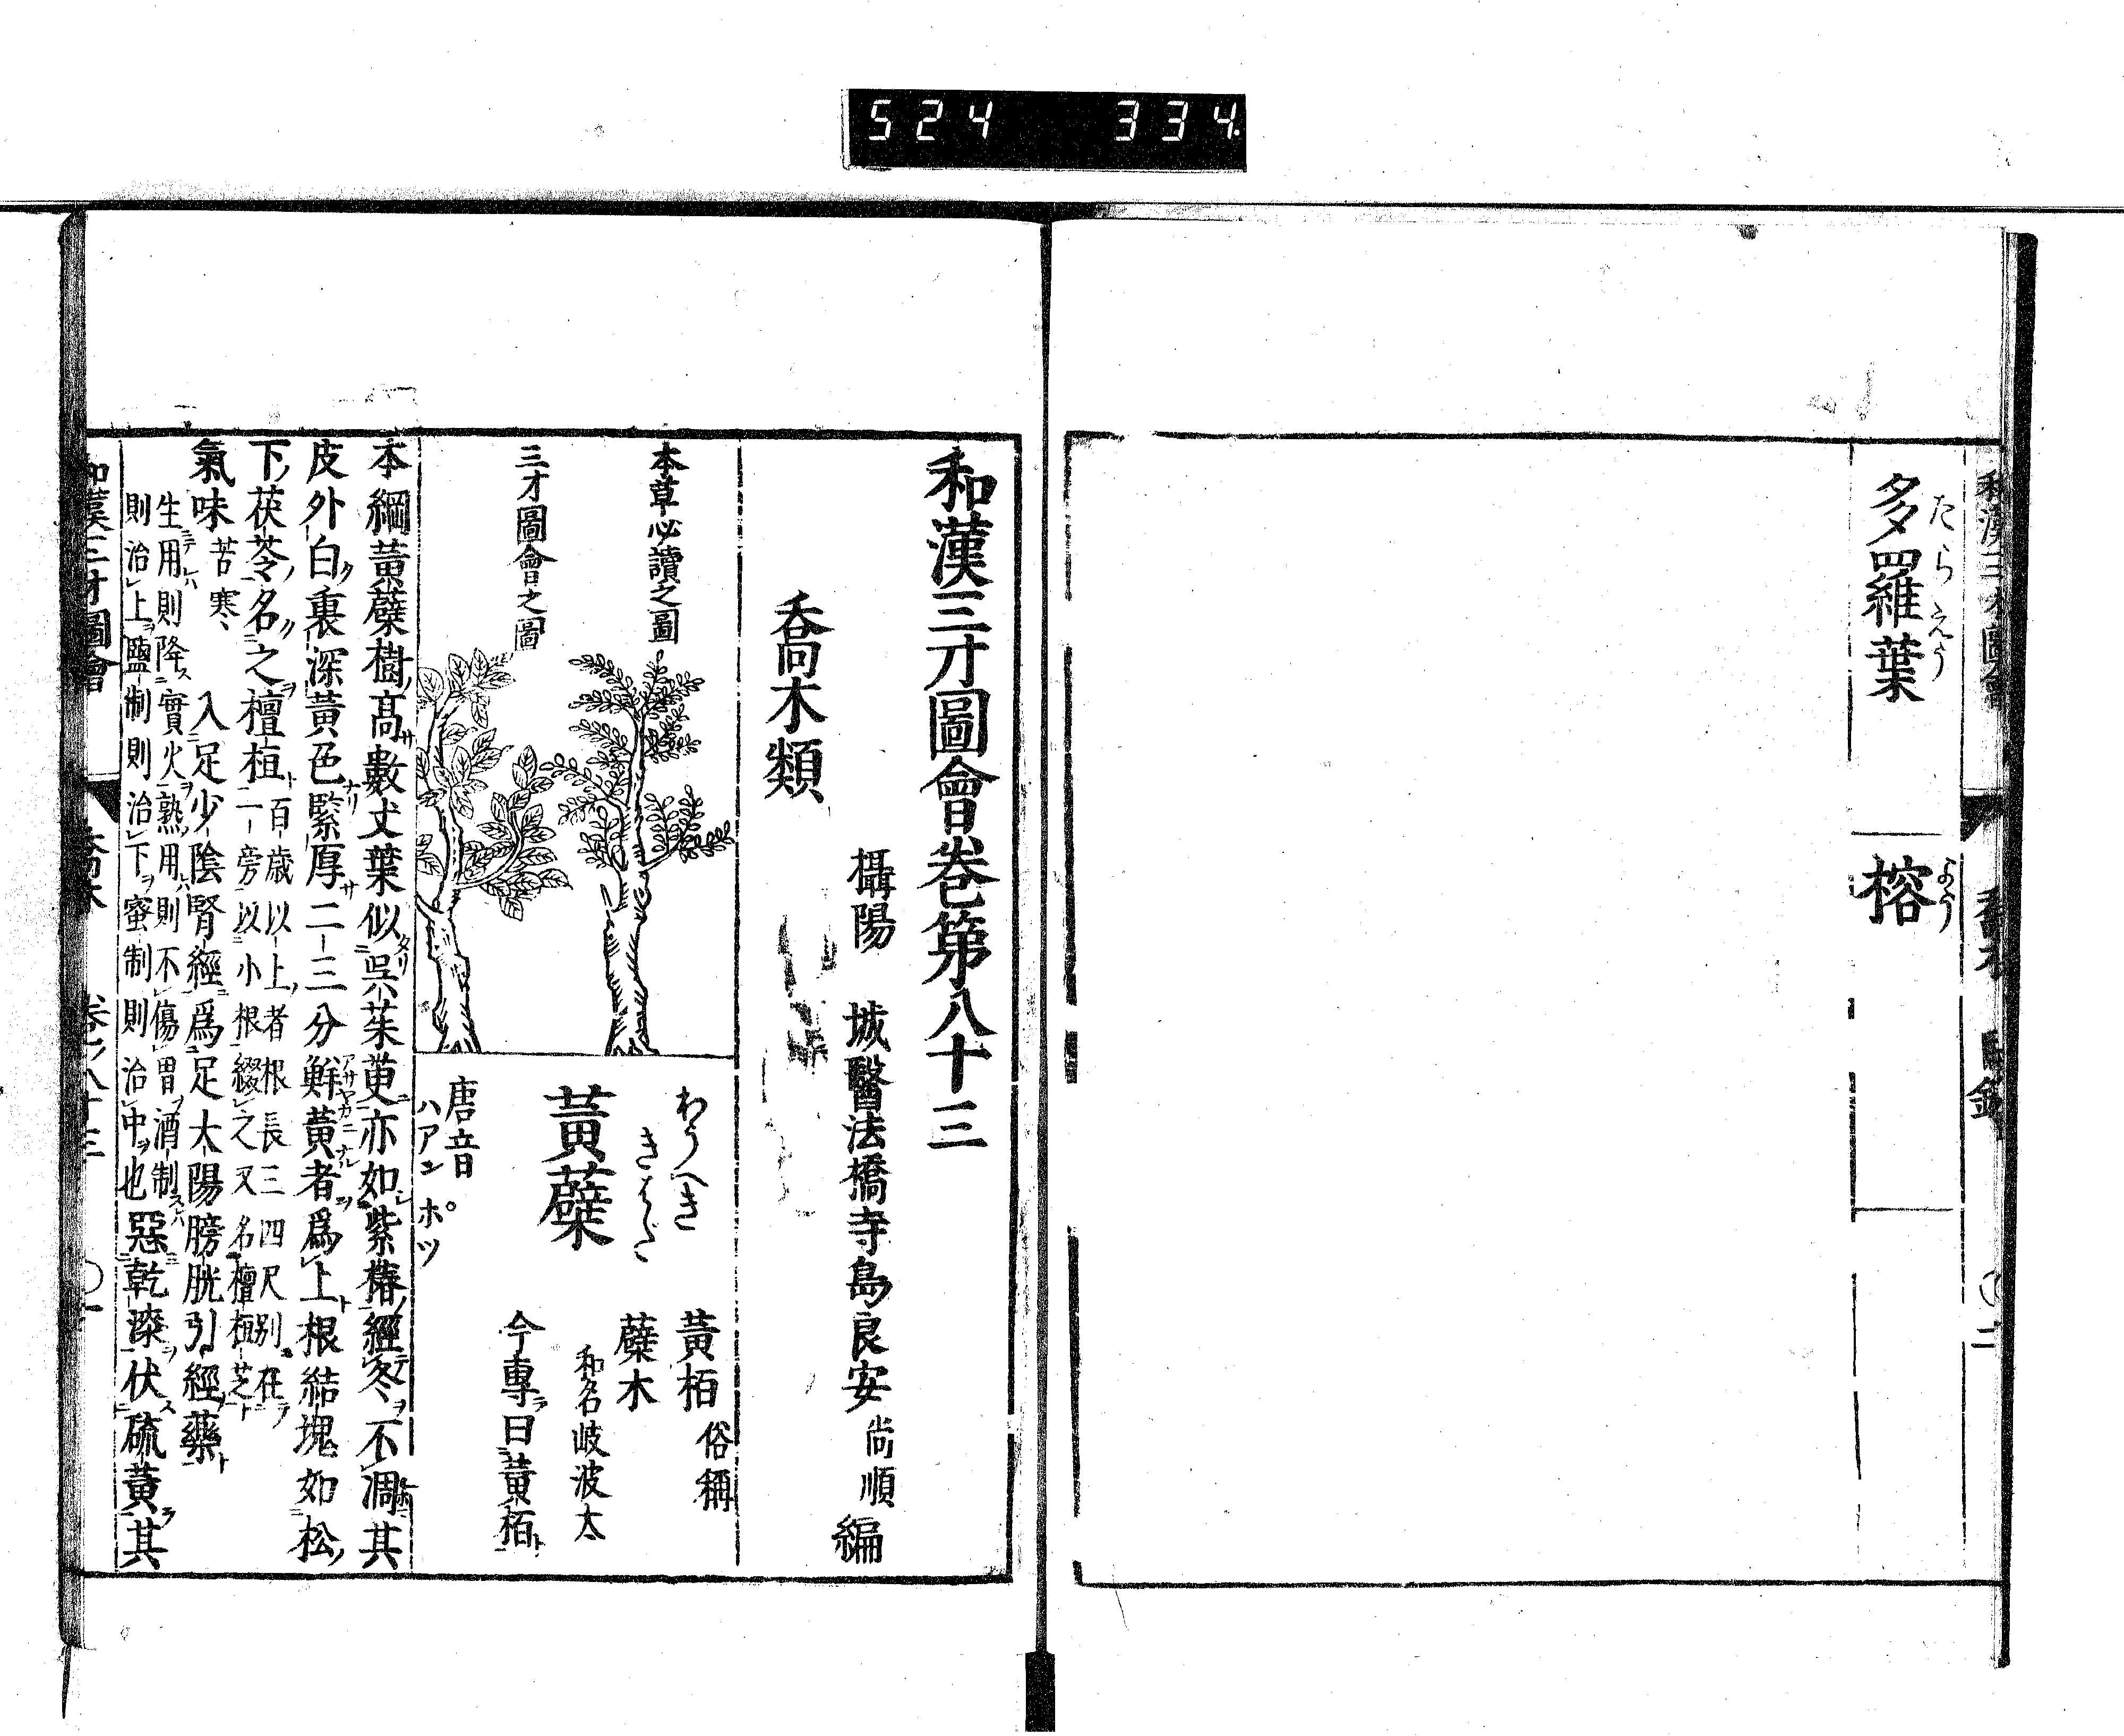 524 334.
和漢三才圖會
喬木 目録 〇二
たらえう
多羅葉
よう
榕
和漢三才圖會卷第八十三
攝陽 城醫法橋寺島良安尚順編
喬木類
本草必讀之圖
三才圖會之圖
わうへき
きはだ
黃蘗
唐音
ハアン ポツ
黃栢俗稱
蘗木
和名岐波太
今專曰黃栢
本綱黃蘗樹髙數丈葉似吳茱萸亦如紫椿經冬不凋其
皮外白裏深黃色緊厚二三分鮮黃者爲上根結塊如松
下茯苓名之檀桓百歳以上者根長三四尺別在
一旁以小根綴之又名檀桓芝
氣味苦寒 入足少陰腎經爲足太陽膀胱引經藥
生用則降實火熟用則不傷胃酒制
則治上鹽制則治下蜜制則治中也惡乾漆伏硫黃其
和漢三才圖會 喬木 卷ノ八十三 〇一